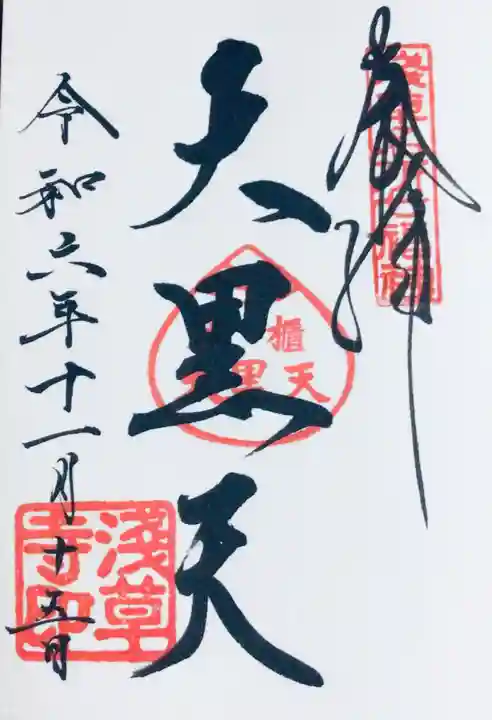 奉拝
大黒天
令和六年十一月十五日
櫃
天
浅草
寺印